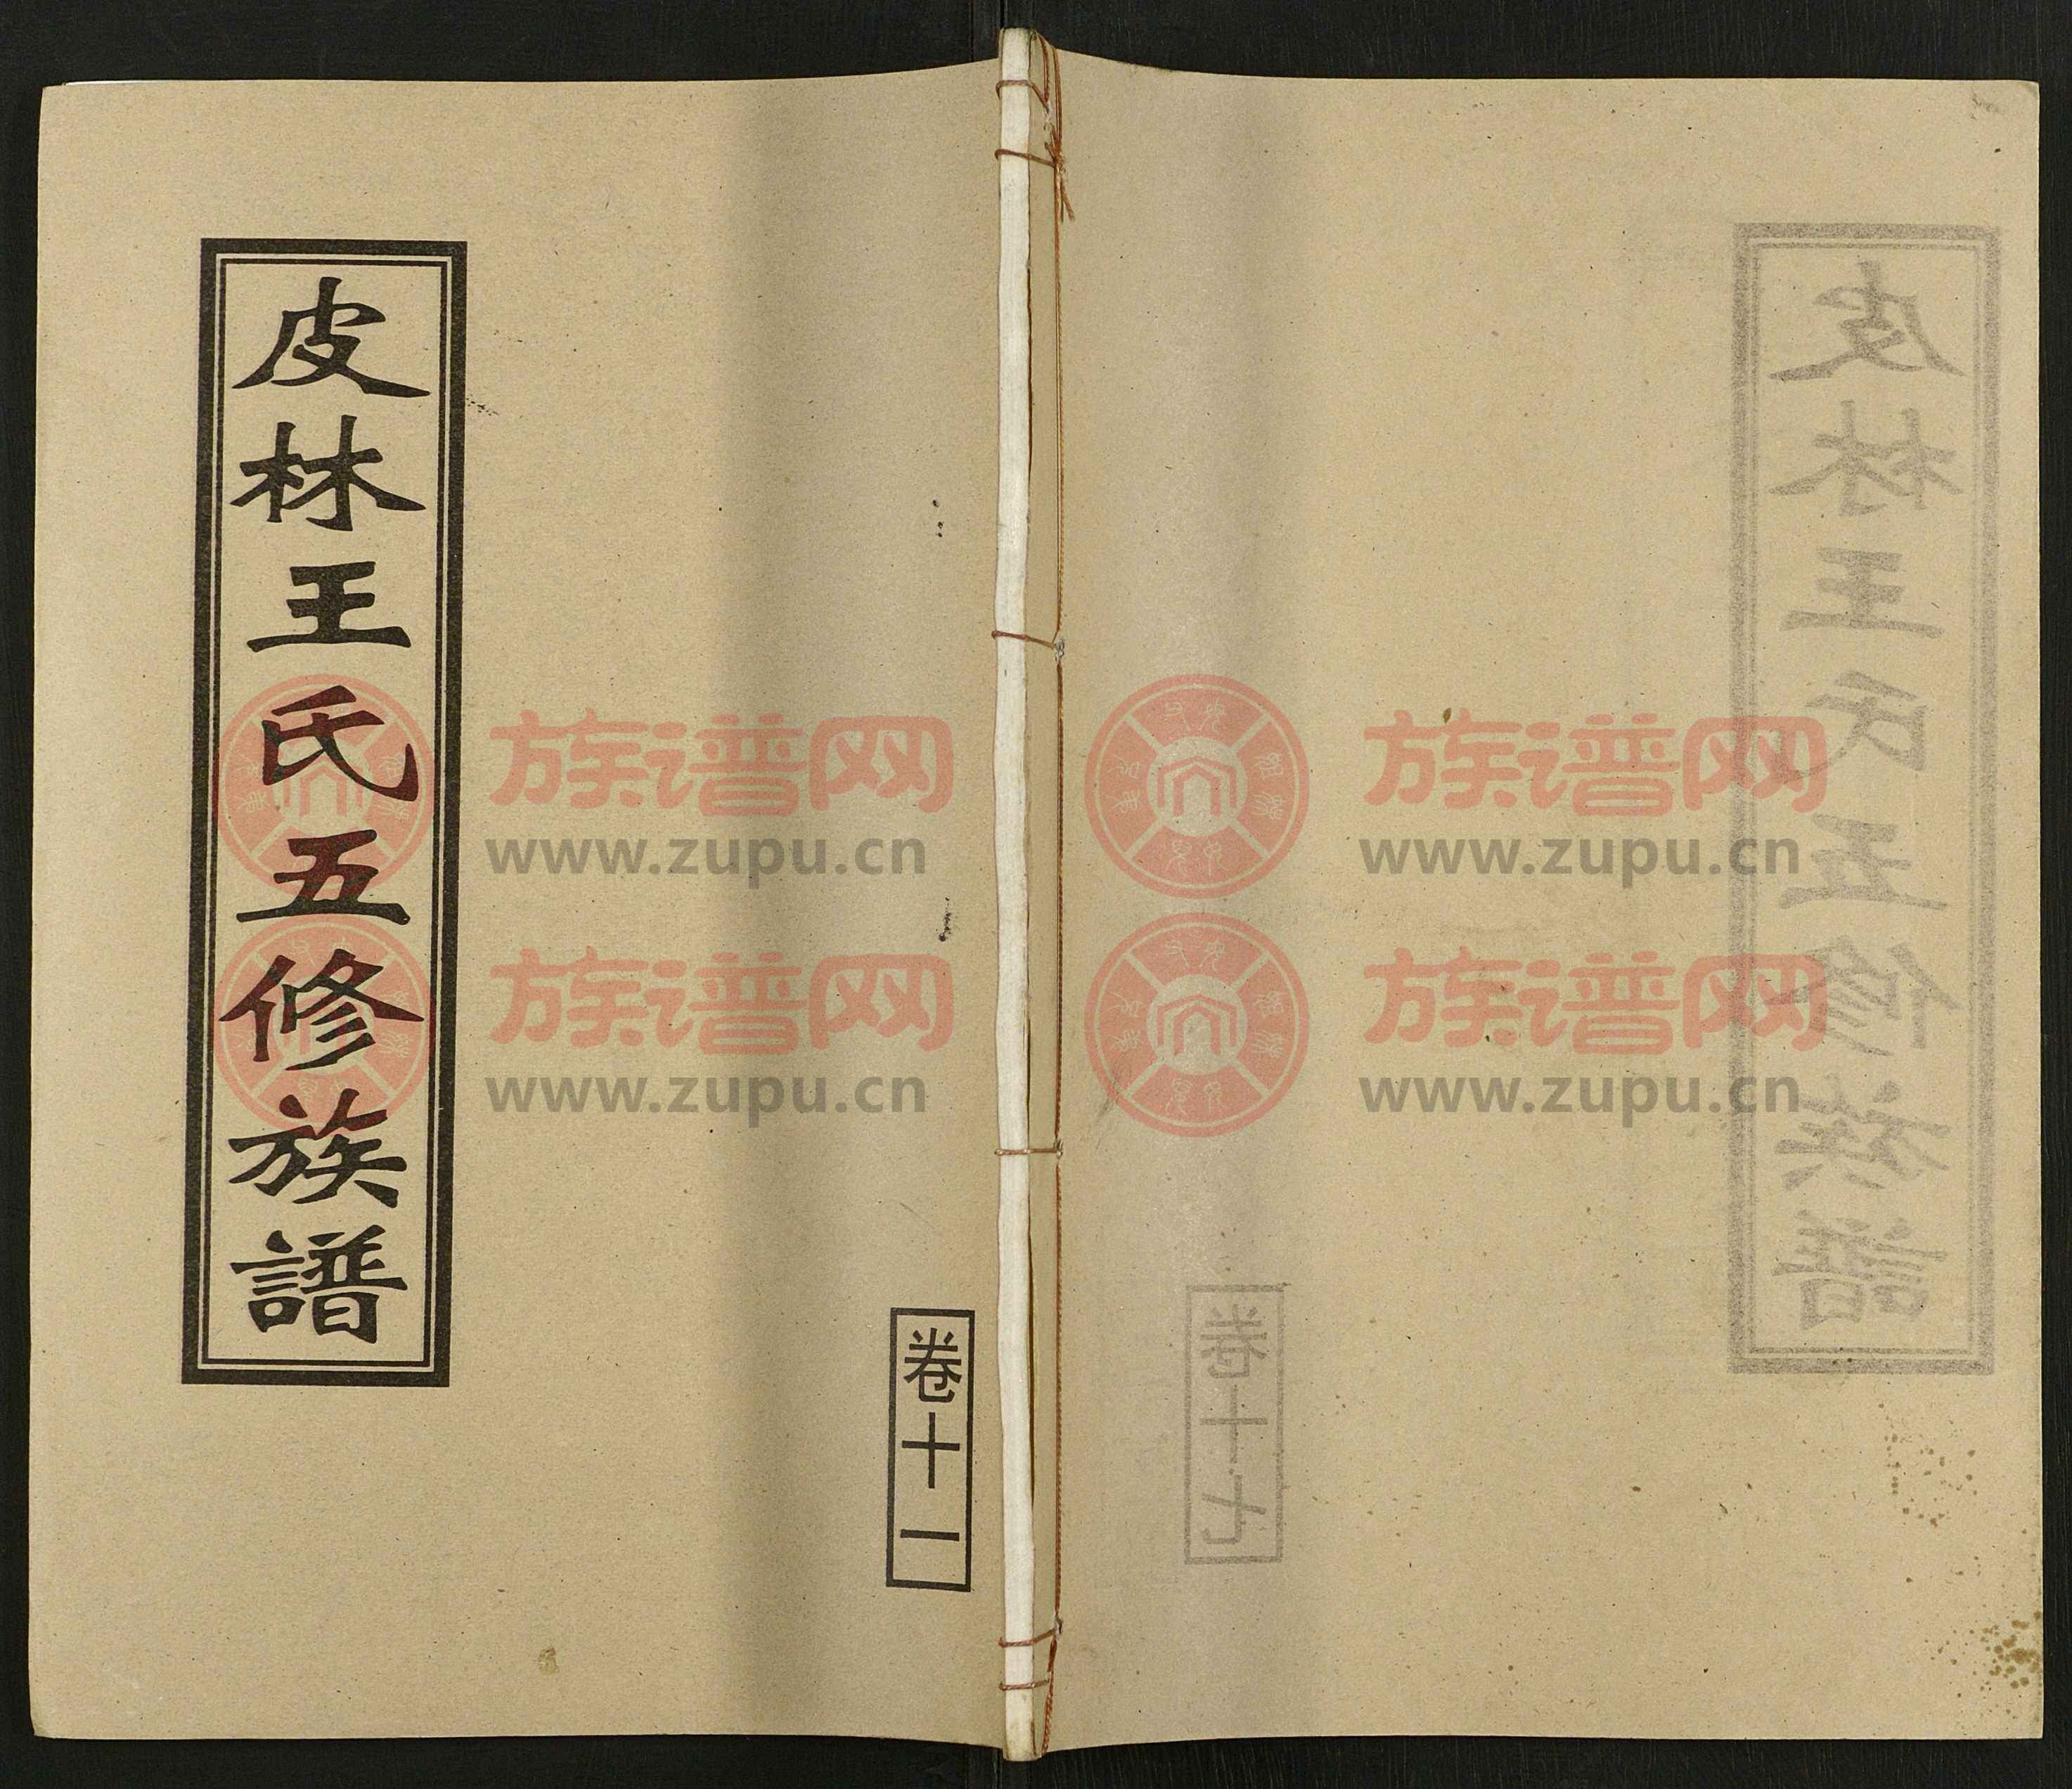 皮林王氏五修族譜
卷十一
族谱网
www.zupu.cn
族谱网
www.zupu.cn
族谱网
www.zupu.cn
族谱网
www.zupu.cn
皮林王氏五修族譜
卷十七